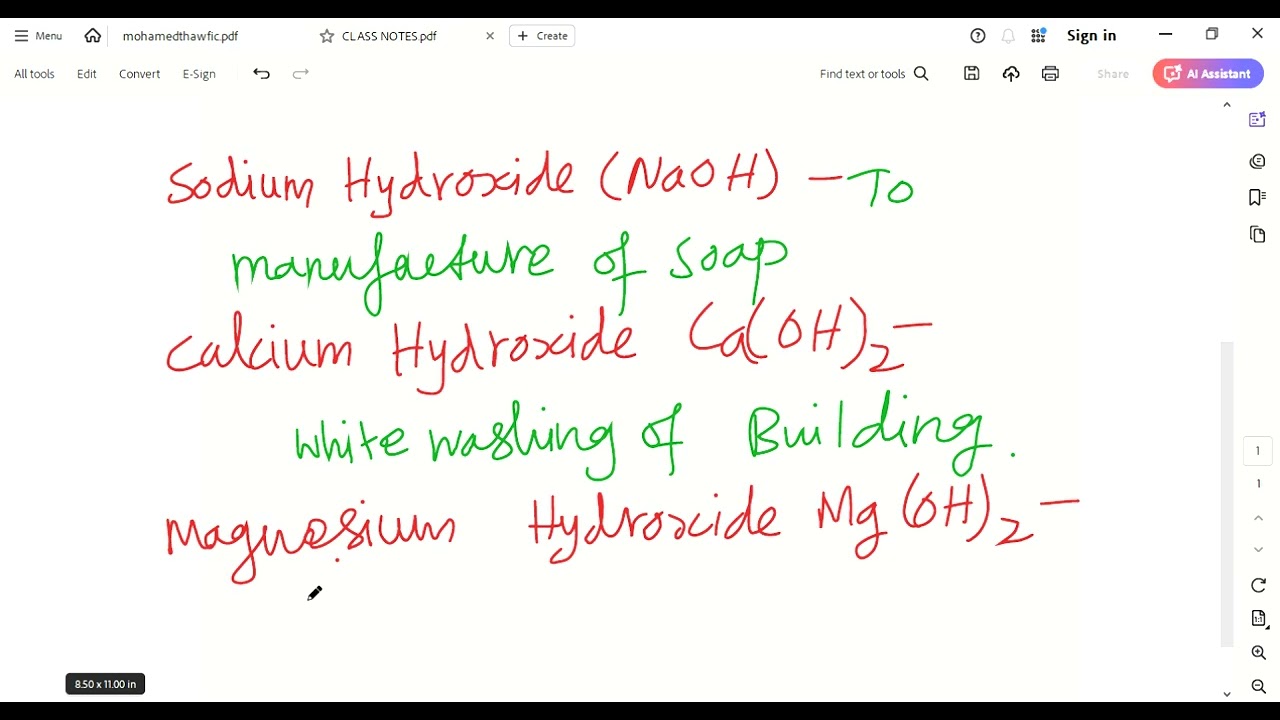 Menu mohamedthawfic.pdf CLASS NOTES.pdf Create Sign in
All tools Edit Convert E-Sign Find text or tools Share AI Assistant
Sodium Hydroxide (NaOH) - To
manufacture of soap
Calcium Hydroxide Ca(OH)2 -
white washing of Building.
Magnesium Hydroxide Mg(OH)2 -
1
1
1:1
8.50 x 11.00 in